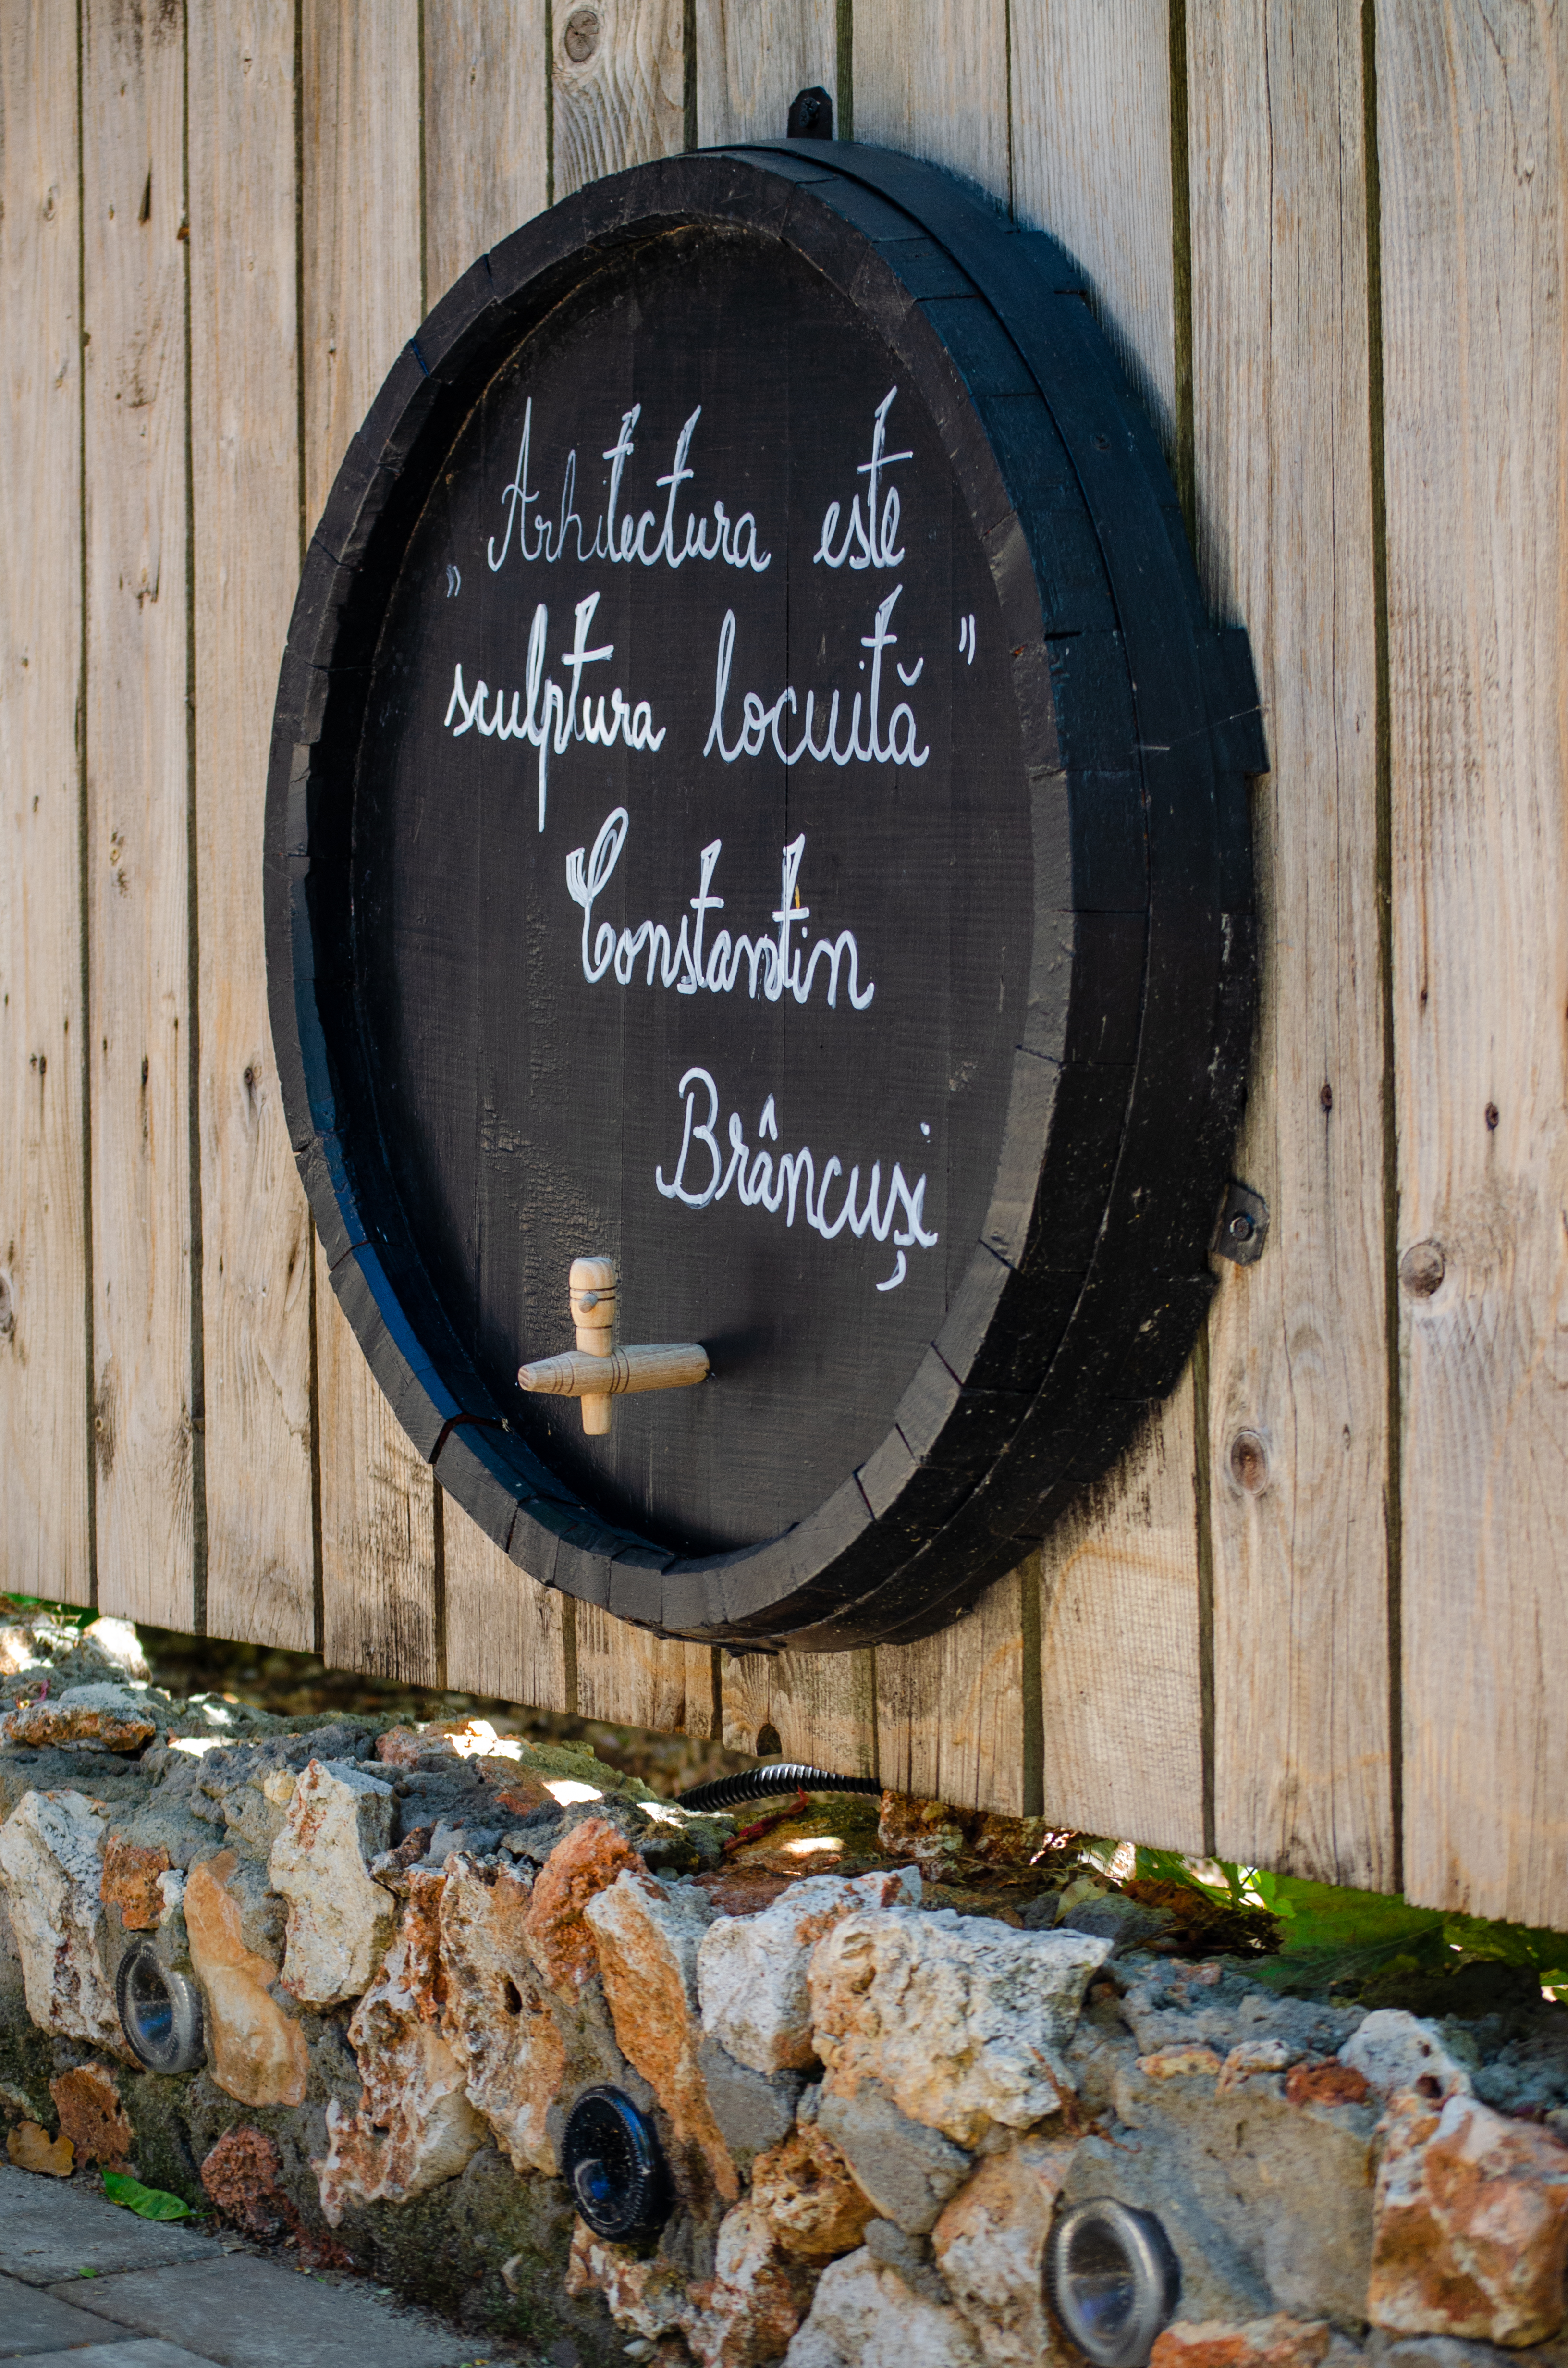 „Arhitectura este
sculptura locuită"
Constantin
Brâncuși